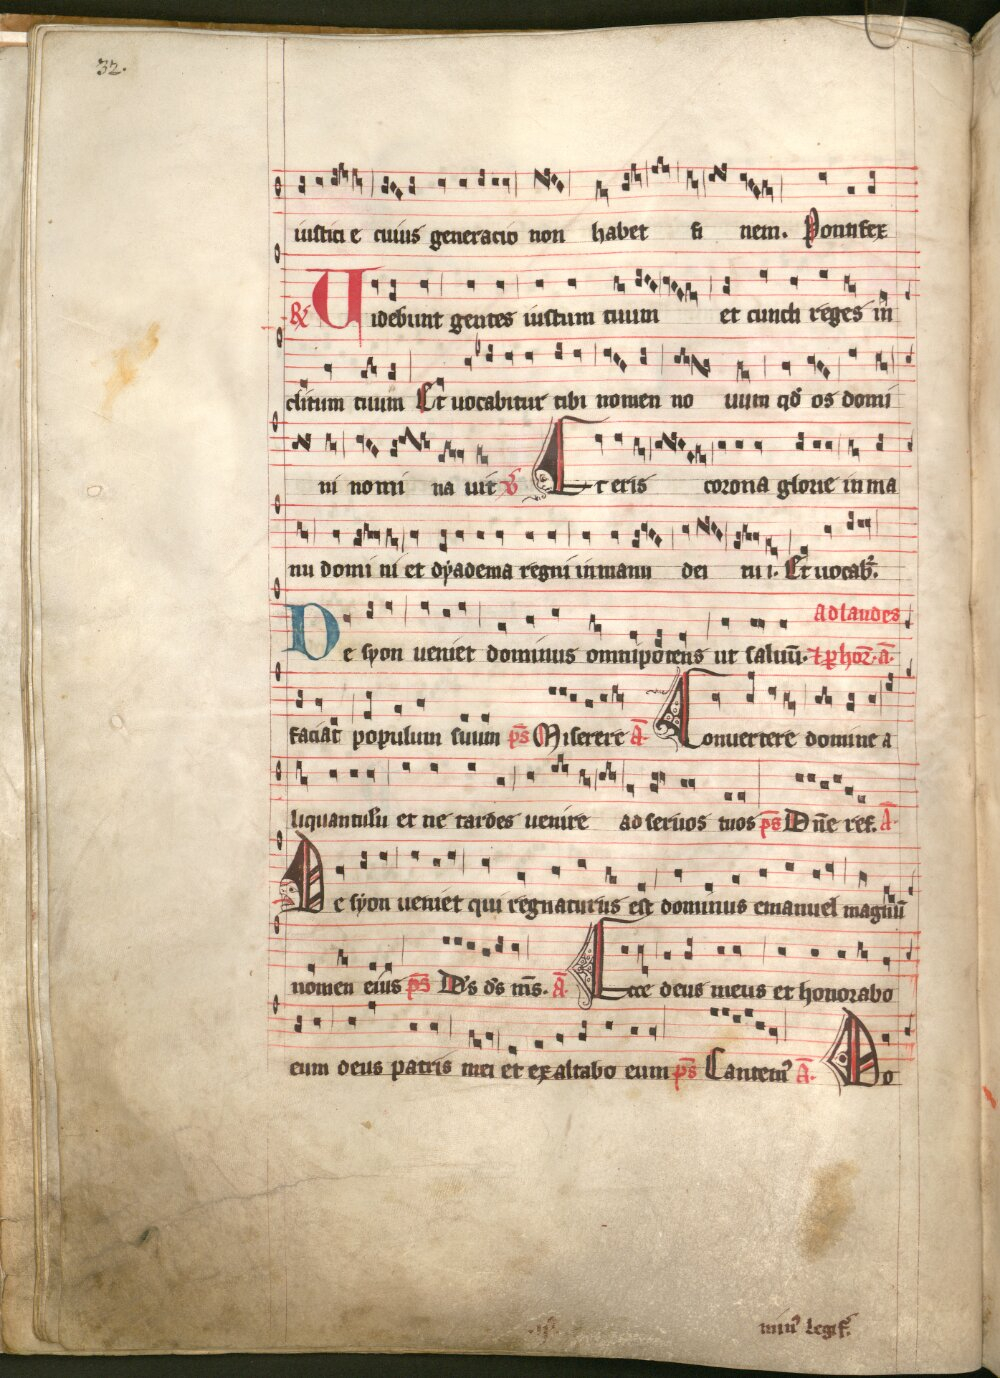 32.
iusticie cuius generacio non habet fi nem. Pontifex
R Uidebunt gentes iustum tuum et cuncti reges in
clitum tuum Et uocabitur tibi nomen no uum qd os domi
ni nomi na uit V Et eris corona glorie in ma
nu domi ni et dyadema regni in manu dei tu i. Et uocab.
Ad laudes
De syon ueniet dominus omnipotens ut saluū. et p hor. A.
faciat populum suum ps Miserere A Conuertere domine a
liquantulu et ne tardes uenire ad seruos tuos ps Dne ref. A
De syon ueniet qui regnaturus est dominus emanuel magnū
nomen eius ps Ds ds ms. A. Ecce deus meus et honorabo
eum deus patris mei et exaltabo eum ps Cantem A. Do
minus legif.